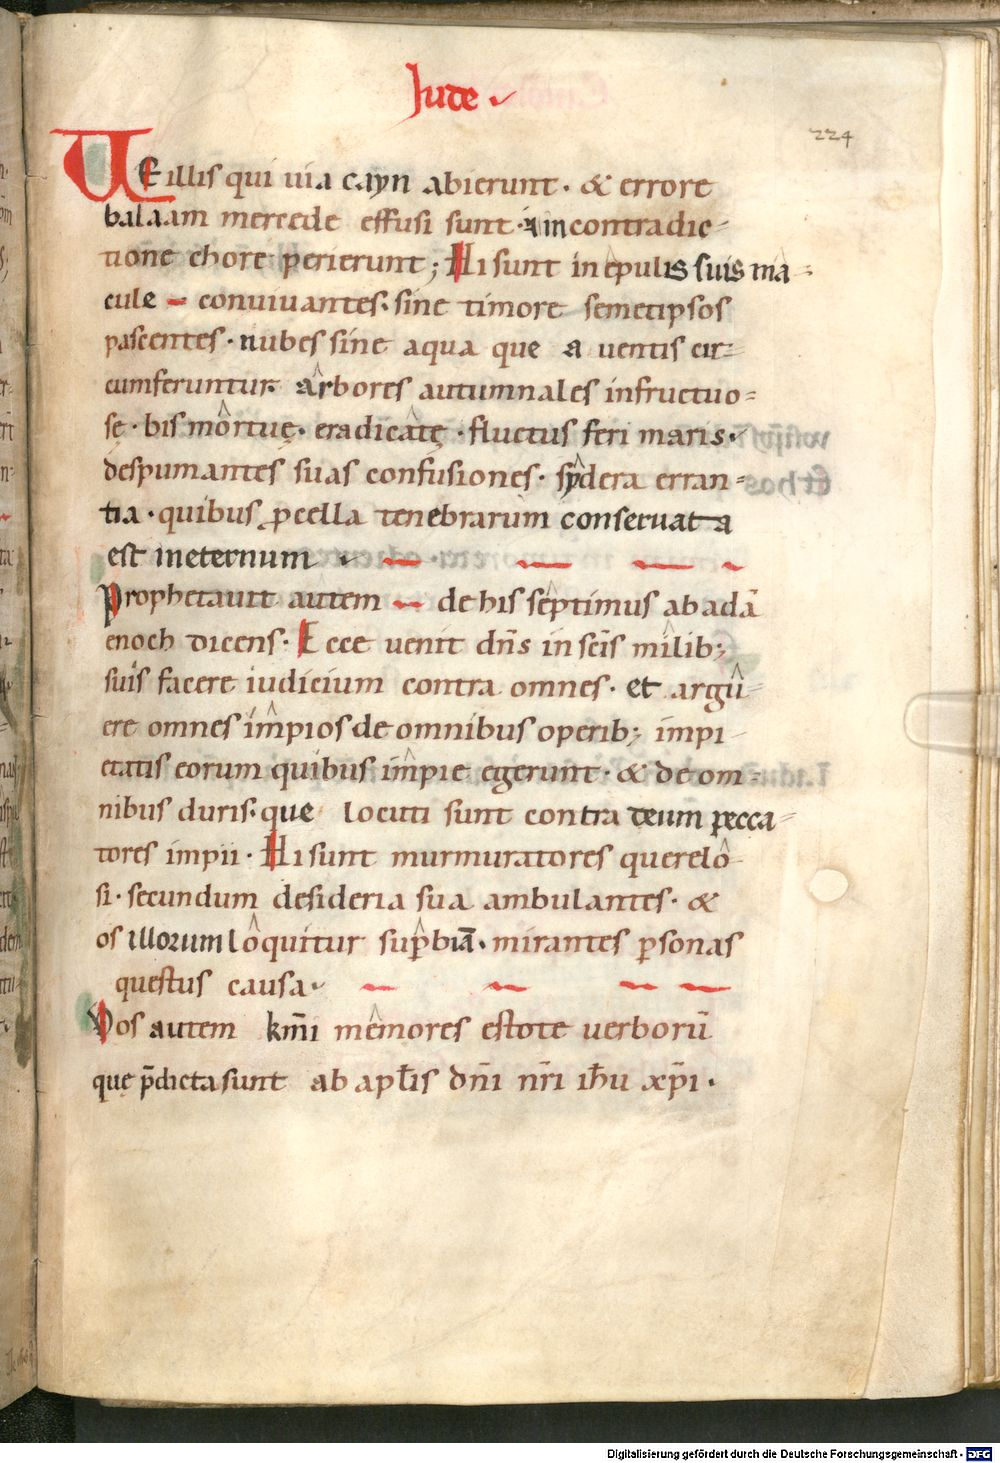 Iude
224
VE illis qui uia cayn abierunt · & errore
balaam mercede effusi sunt · & in contradic-
tione chore perierunt ; Hi sunt in epulis suis ma-
cule conuiuantes · sine timore semetipsos
pascentes · nubes sine aqua que a uentis cir-
cumferuntur · arbores autumnales infructuo-
sę · bis mortuę · eradicatę · fluctus feri maris ·
despumantes suas confusiones · sydera erran-
tia · quibus ꝓcella tenebrarum conseruata
est in eternum
Prophetauit autem de his septimus ab adā
enoch dicens · Ecce uenit dn̄s in scīs milib;
suis facere iudicium contra omnes · et argu-
ere omnes impios de omnibus operib; impi
etatis eorum quibus impie egerunt · & de om-
nibus duris · que locuti sunt contra deum pecca-
tores impii · Hi sunt murmuratores querelo
si · secundum desideria sua ambulantes · &
os illorum loquitur suꝑbiā · mirantes ꝑsonas
questus causa ·
Vos autem km̄i memores estote uerborū
quę p̄dicta sunt ab apl̄is dn̄i nr̄i ih̄u xp̄i ·
Digitalisierung gefördert durch die Deutsche Forschungsgemeinschaft - DFG